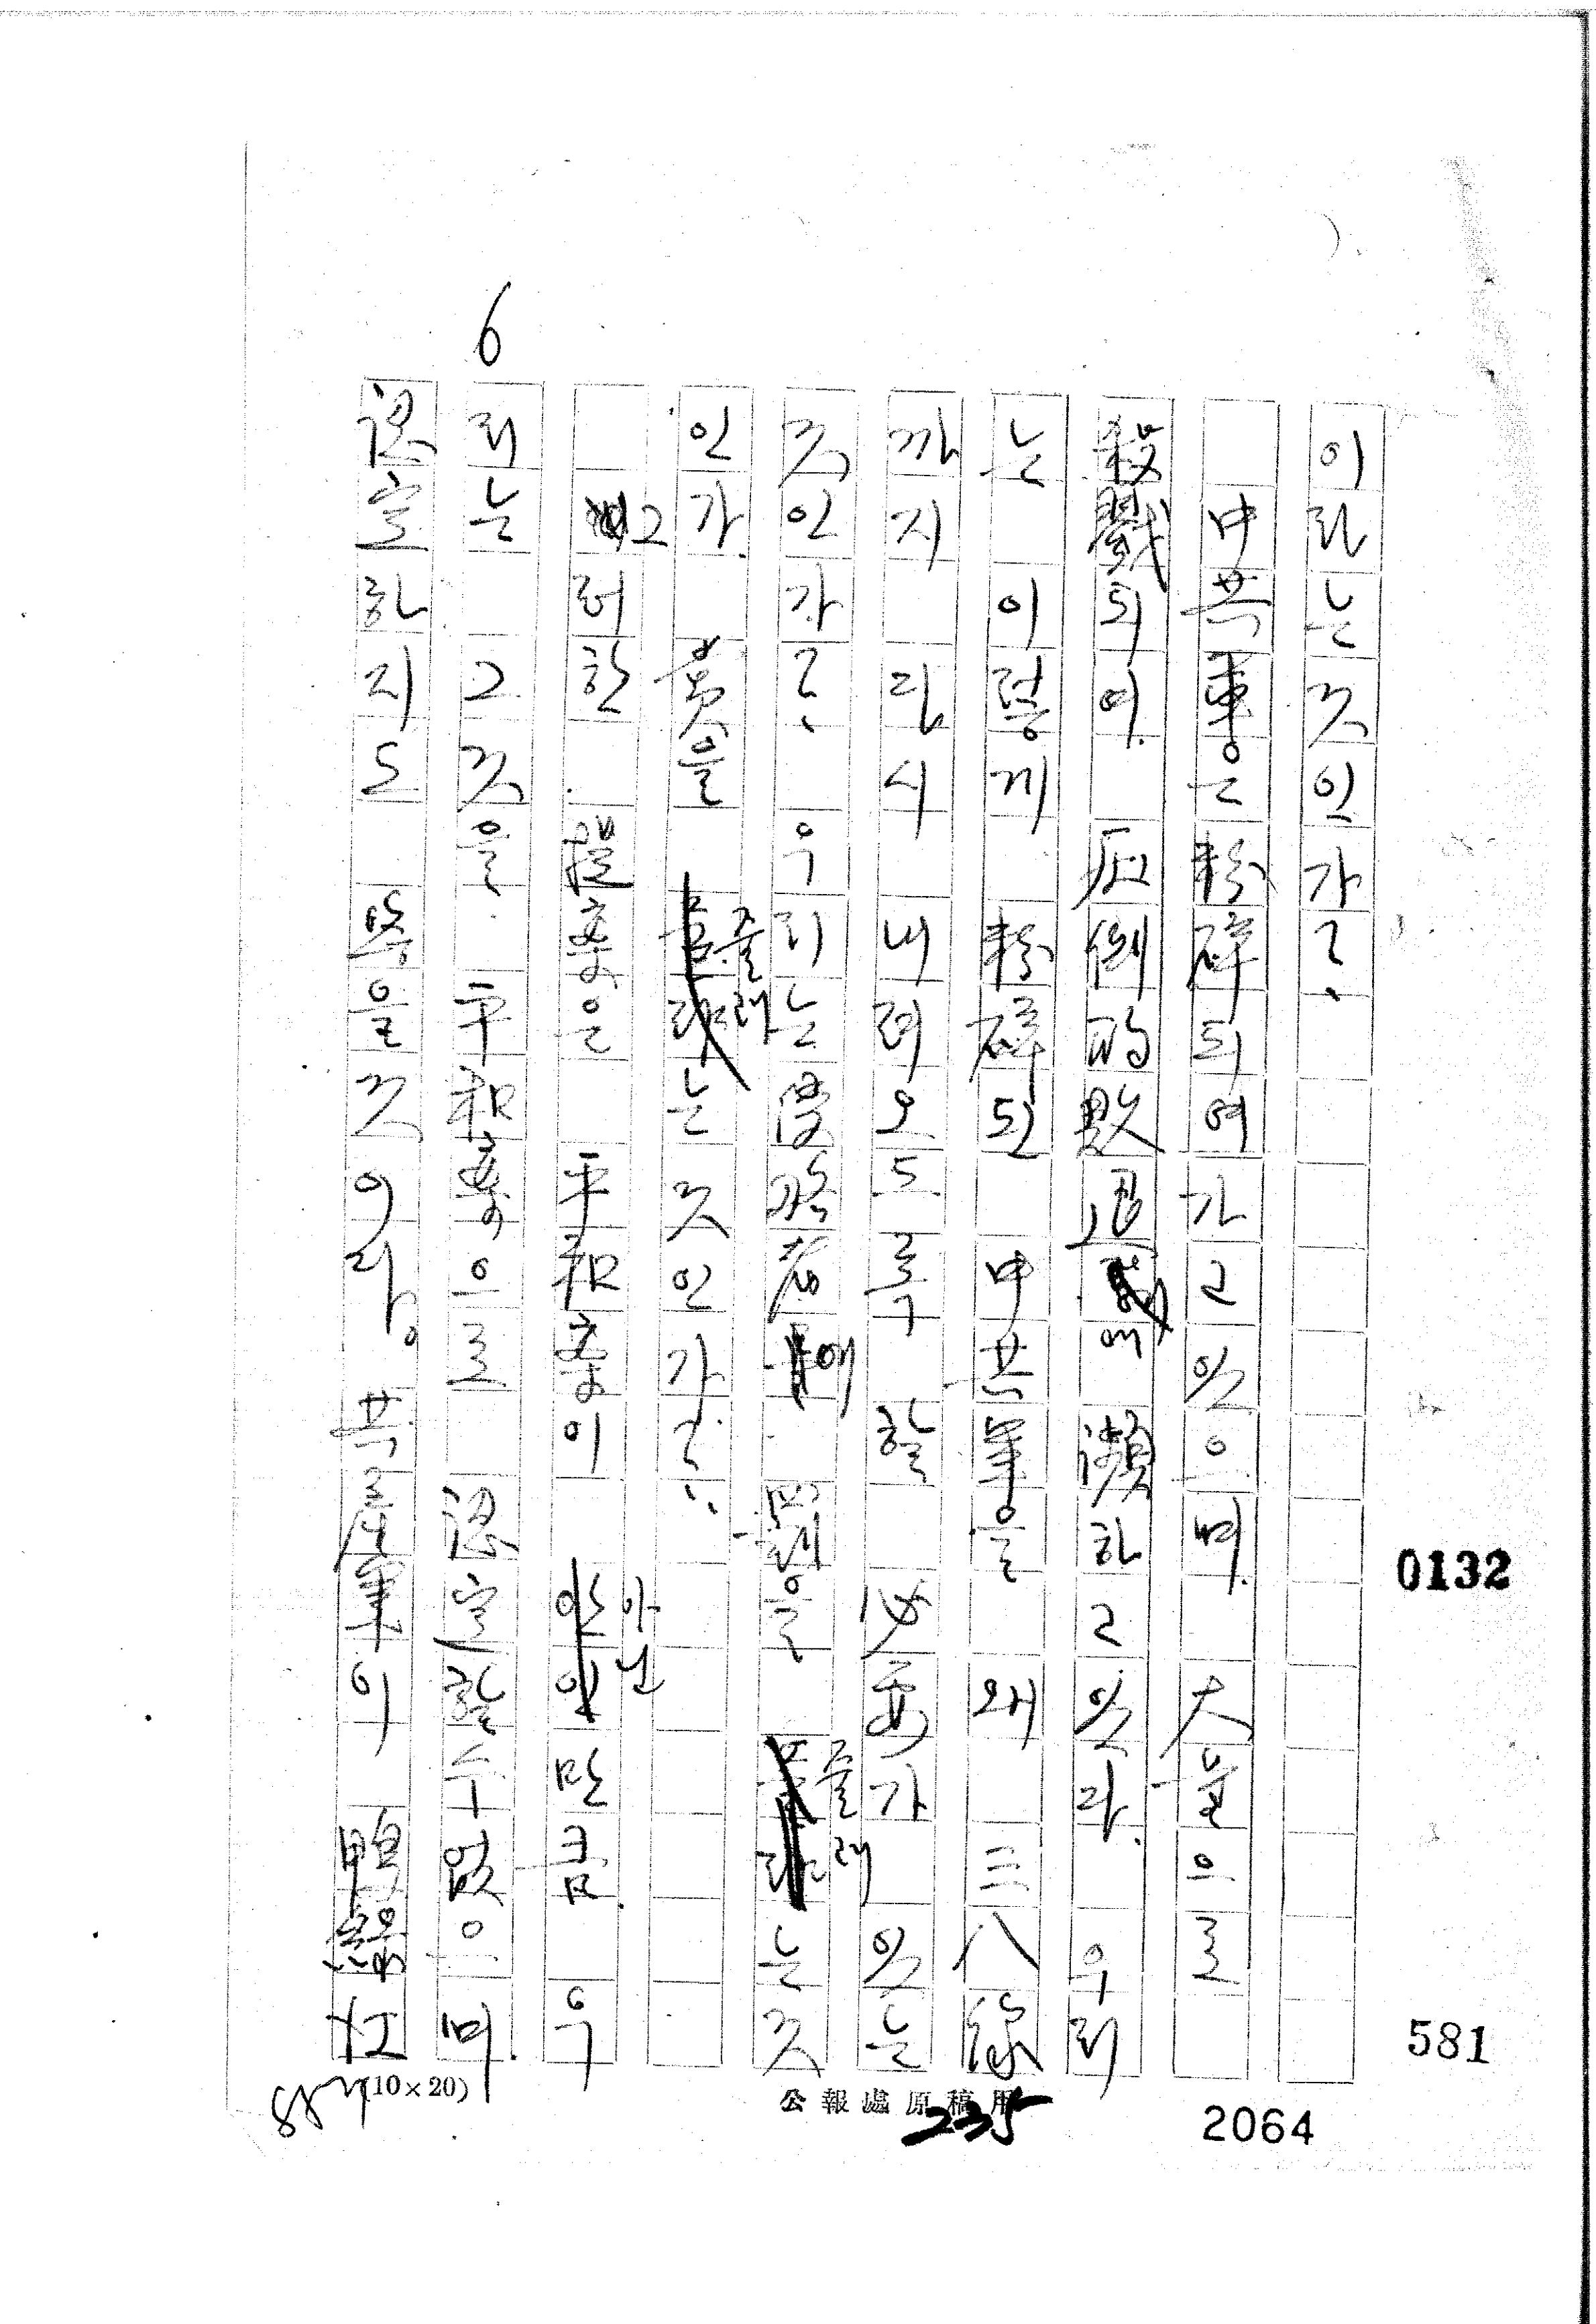 6
이라는 것인가?
中共軍은 粉碎되여가고 있으며. 大部分으로
殺戮되여. 圧倒的 敗退에 瀕하고 있다. 우리
는 이렇게 粉碎된 中共軍을 왜 三八線
까지 다시 내려오도록 할 必要가 있는
것인가? 우리는 侵略者에 罰을 줄래는 것
인가. 賞을 줄래는 것인가?
그러한 提案은 平和案이 아닌만큼. 우
리는 그것을 平和案으로 認定할 수 없으며.
認定하지도 않을 것이다. 共産軍이 鴨綠江
(10×20)
公報處原稿用
235
0132
581
2064